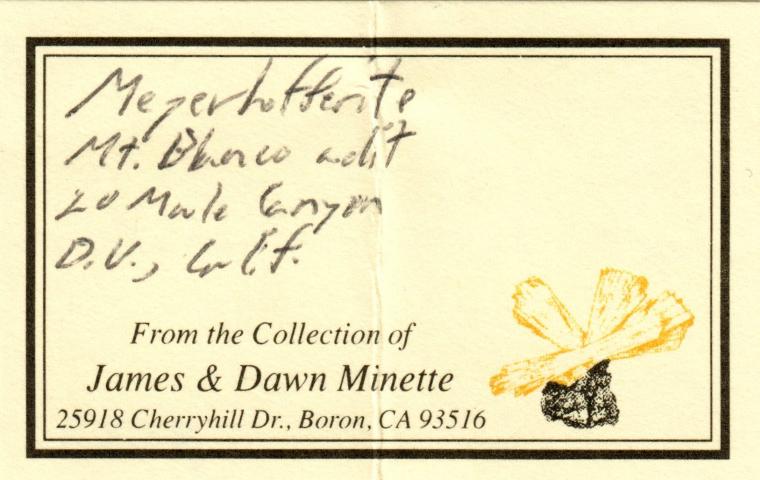 Meyerhofferite
Mt. Blanco adit
20 Mule Canyon
D.V., Calif.
From the Collection of
James & Dawn Minette
25918 Cherryhill Dr., Boron, CA 93516